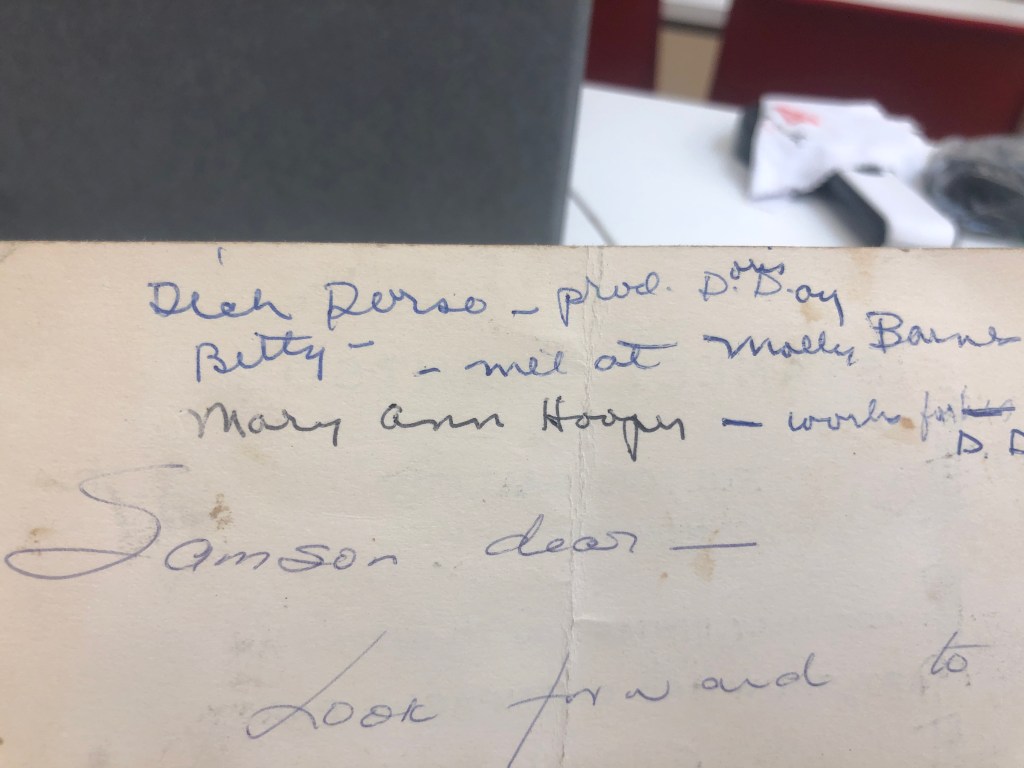 Dick Dorso - prod. Doris Day
Betty - - met at Molly Barnes
Mary Ann Hooper - work for
D. D
Samson dear —
Look forward to